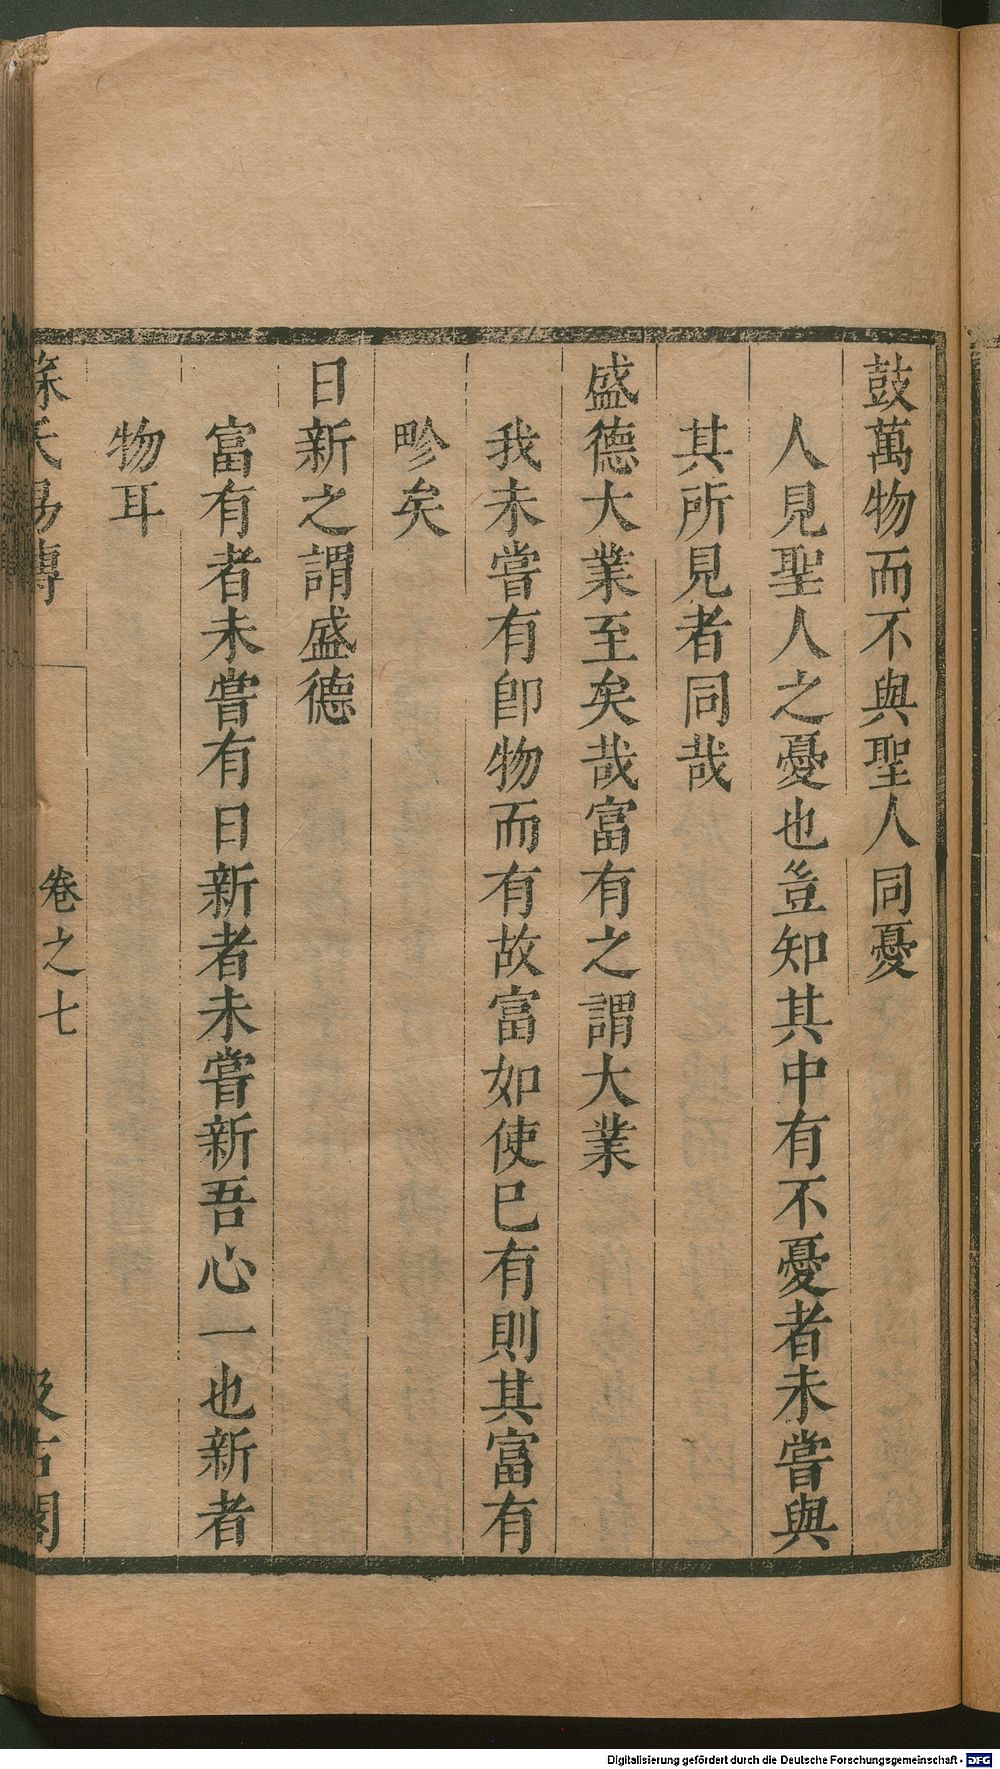 鼓萬物而不與聖人同憂
人見聖人之憂也豈知其中有不憂者未嘗與
其所見者同哉
盛德大業至矣哉富有之謂大業
我未嘗有卽物而有故富如使巳有則其富有
畛矣
日新之謂盛德
富有者未嘗有日新者未嘗新吾心一也新者
物耳
蘇氏易傳
卷之七
汲古閣
Digitalisierung gefördert durch die Deutsche Forschungsgemeinschaft - DFG